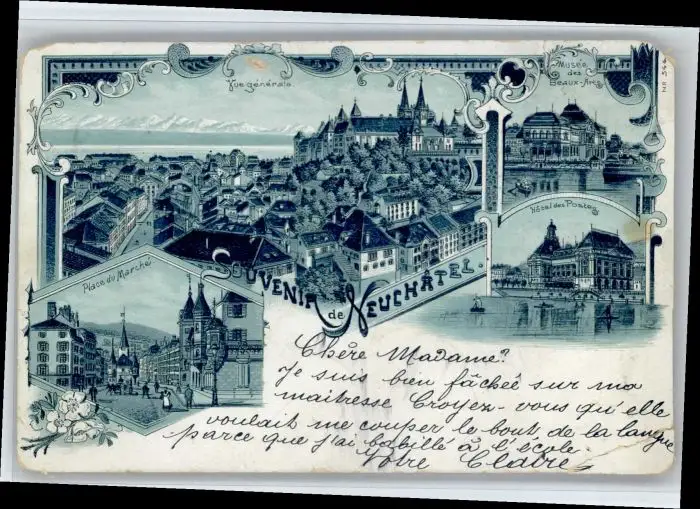 Vue générale
Musée
des
Beaux-Arts
Hôtel des Postes
Place du Marché
SOUVENIR de NEUCHÂTEL
Chère Madame?
Je suis bien fâchée sur ma
maitresse Croyez-vous qu'elle
voulait me couper le bout, de la langue
parce que j'ai babillé à l'école.
Votre Claire